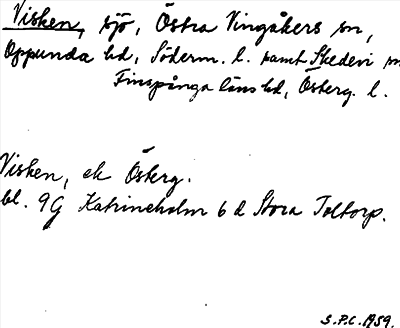 Visken, sjö, Östra Vingåkers sn,
Oppunda hd, Söderm. l. samt Skedevi sn
Finspånga läns hd, Österg. l.
Visken, ek Österg.
bl. 9G Katrineholm 6 d Stora Toltorp.
S.P.C. 1959.